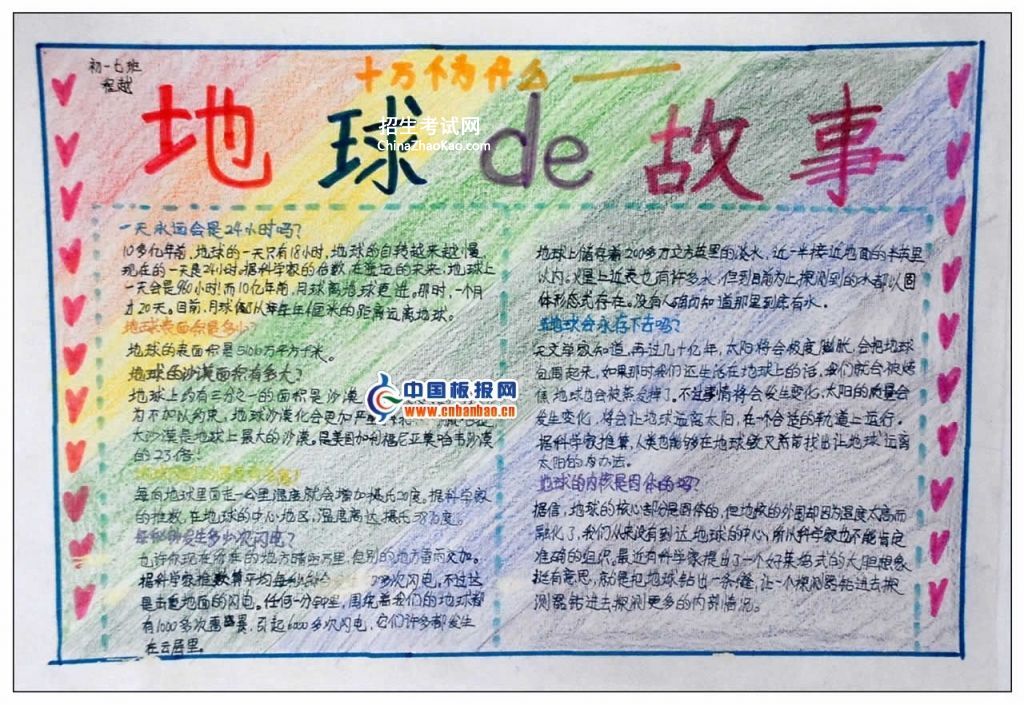 初一七班
程越
十万个为什么——
地球de故事
招生考试网
ChinaZhaoKao.com
一天永远会是24小时吗?
10多亿年前,地球的一天只有18小时,地球的自转越来越慢,
现在的一天是24小时。据科学家的估数,在遥远的未来,地球上
一天会是960小时!而10亿年前,月球离地球更近。那时,一个月
为20天。目前,月球以每年4厘米的距离远离地球。
地球表面积是多少?
地球的表面积是5100万平方千米。
地球的沙漠面积有多大?
地球上约有三分之一的面积是沙漠
为不加以约束,地球沙漠化会更加严重
大沙漠是地球上最大的沙漠。是美国加利福尼亚莫哈韦沙漠
的23倍!
每向地球里面走一公里温度就会增加摄氏20度。据科学家
的推数,在地球的中心地区,温度高达摄氏
发生多少次闪电?
也许你现在所在的地方晴空万里,但别的地方雷雨交加。
据科学家推数算平均每秒 多次闪电,不过这
是击重地面的闪电。任何一分钟里,围绕着我们的地球都
有1000多次雷暴,引起6000多次闪电,它们许多都发生
在云层里。
中国板报网
www.cnbanbao.cn
地球上储存着200多万立方英里的淡水,近一半接近地面的半英里
以内。火星上近表也有许多水,但到目前为止探测到的水都以固
体形态式存在。没有人确切知道那里到底有水。
地球会永存下去吗?
天文学家知道,再过几十亿年,太阳将会极度膨胀,会把地球
包围起来,如果那时我们还生活在地球上的话,我们就会被烤
焦,地球也会被蒸发掉了。不过事情将会发生变化,太阳的质量会
发生变化,将会让地球远离太阳,在一个合适的轨道上运行。
据科学家推算,人类也能够在地球毁灭前找出让地球远离
太阳的的办法。
地球的内核是固体的吗?
据信,地球的核心部份是固体的,但地核的外围却因为温度太高而
融化了,我们从来没有到达地球的中心,所以科学家也不能肯定
准确的组识。最近有科学家提出了一个好莱坞式的大胆想象
挺有意思,就是把地球钻出一条缝,让一个探测器钻进去探
测器钻进去探测更多的内部情况。